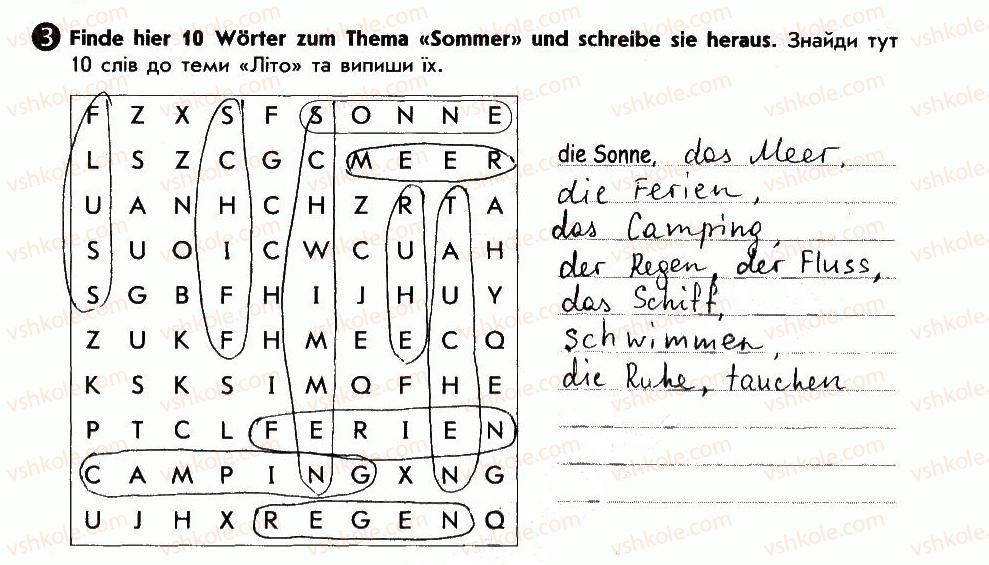 3 Finde hier 10 Wörter zum Thema «Sommer» und schreibe sie heraus. Знайди тут
10 слів до теми «Літо» та випиши їх.
F Z X S F S O N N E
L S Z C G C M E E R
U A N H C H Z R T A
S U O I C W C U A H
S G B F H I J H U Y
Z U K F H M E E C Q
K S K S I M Q F H E
P T C L F E R I E N
C A M P I N G X N G
U J H X R E G E N Q
die Sonne, das Meer,
die Ferien,
das Camping,
der Regen, der Fluss,
das Schiff,
schwimmen,
die Ruhe, tauchen
vshkole.com